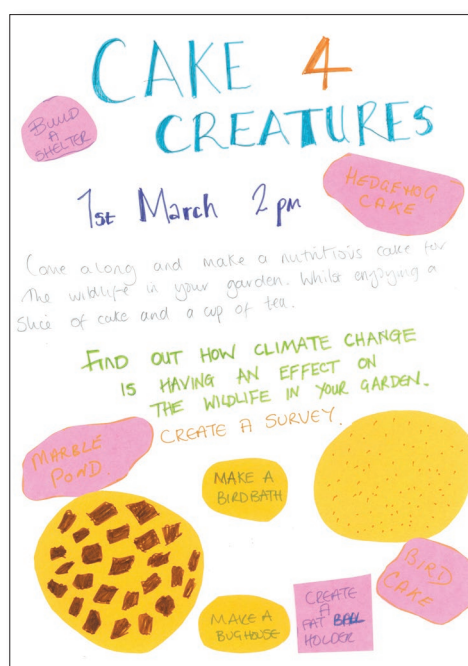 CAKE 4
CREATURES
BUILD
A
SHELTER
HEDGEHOG
CAKE
1st March 2pm
Come along and make a nutritious cake for
the wildlife in your garden. Whilst enjoying a
slice of cake and a cup of tea.
FIND OUT HOW CLIMATE CHANGE
IS HAVING AN EFFECT ON
THE WILDLIFE IN YOUR GARDEN.
CREATE A SURVEY.
MARBLE
POND
MAKE A
BIRDBATH
BIRD
CAKE
CREATE
A
FAT BALL
HOLDER
MAKE A
BUGHOUSE